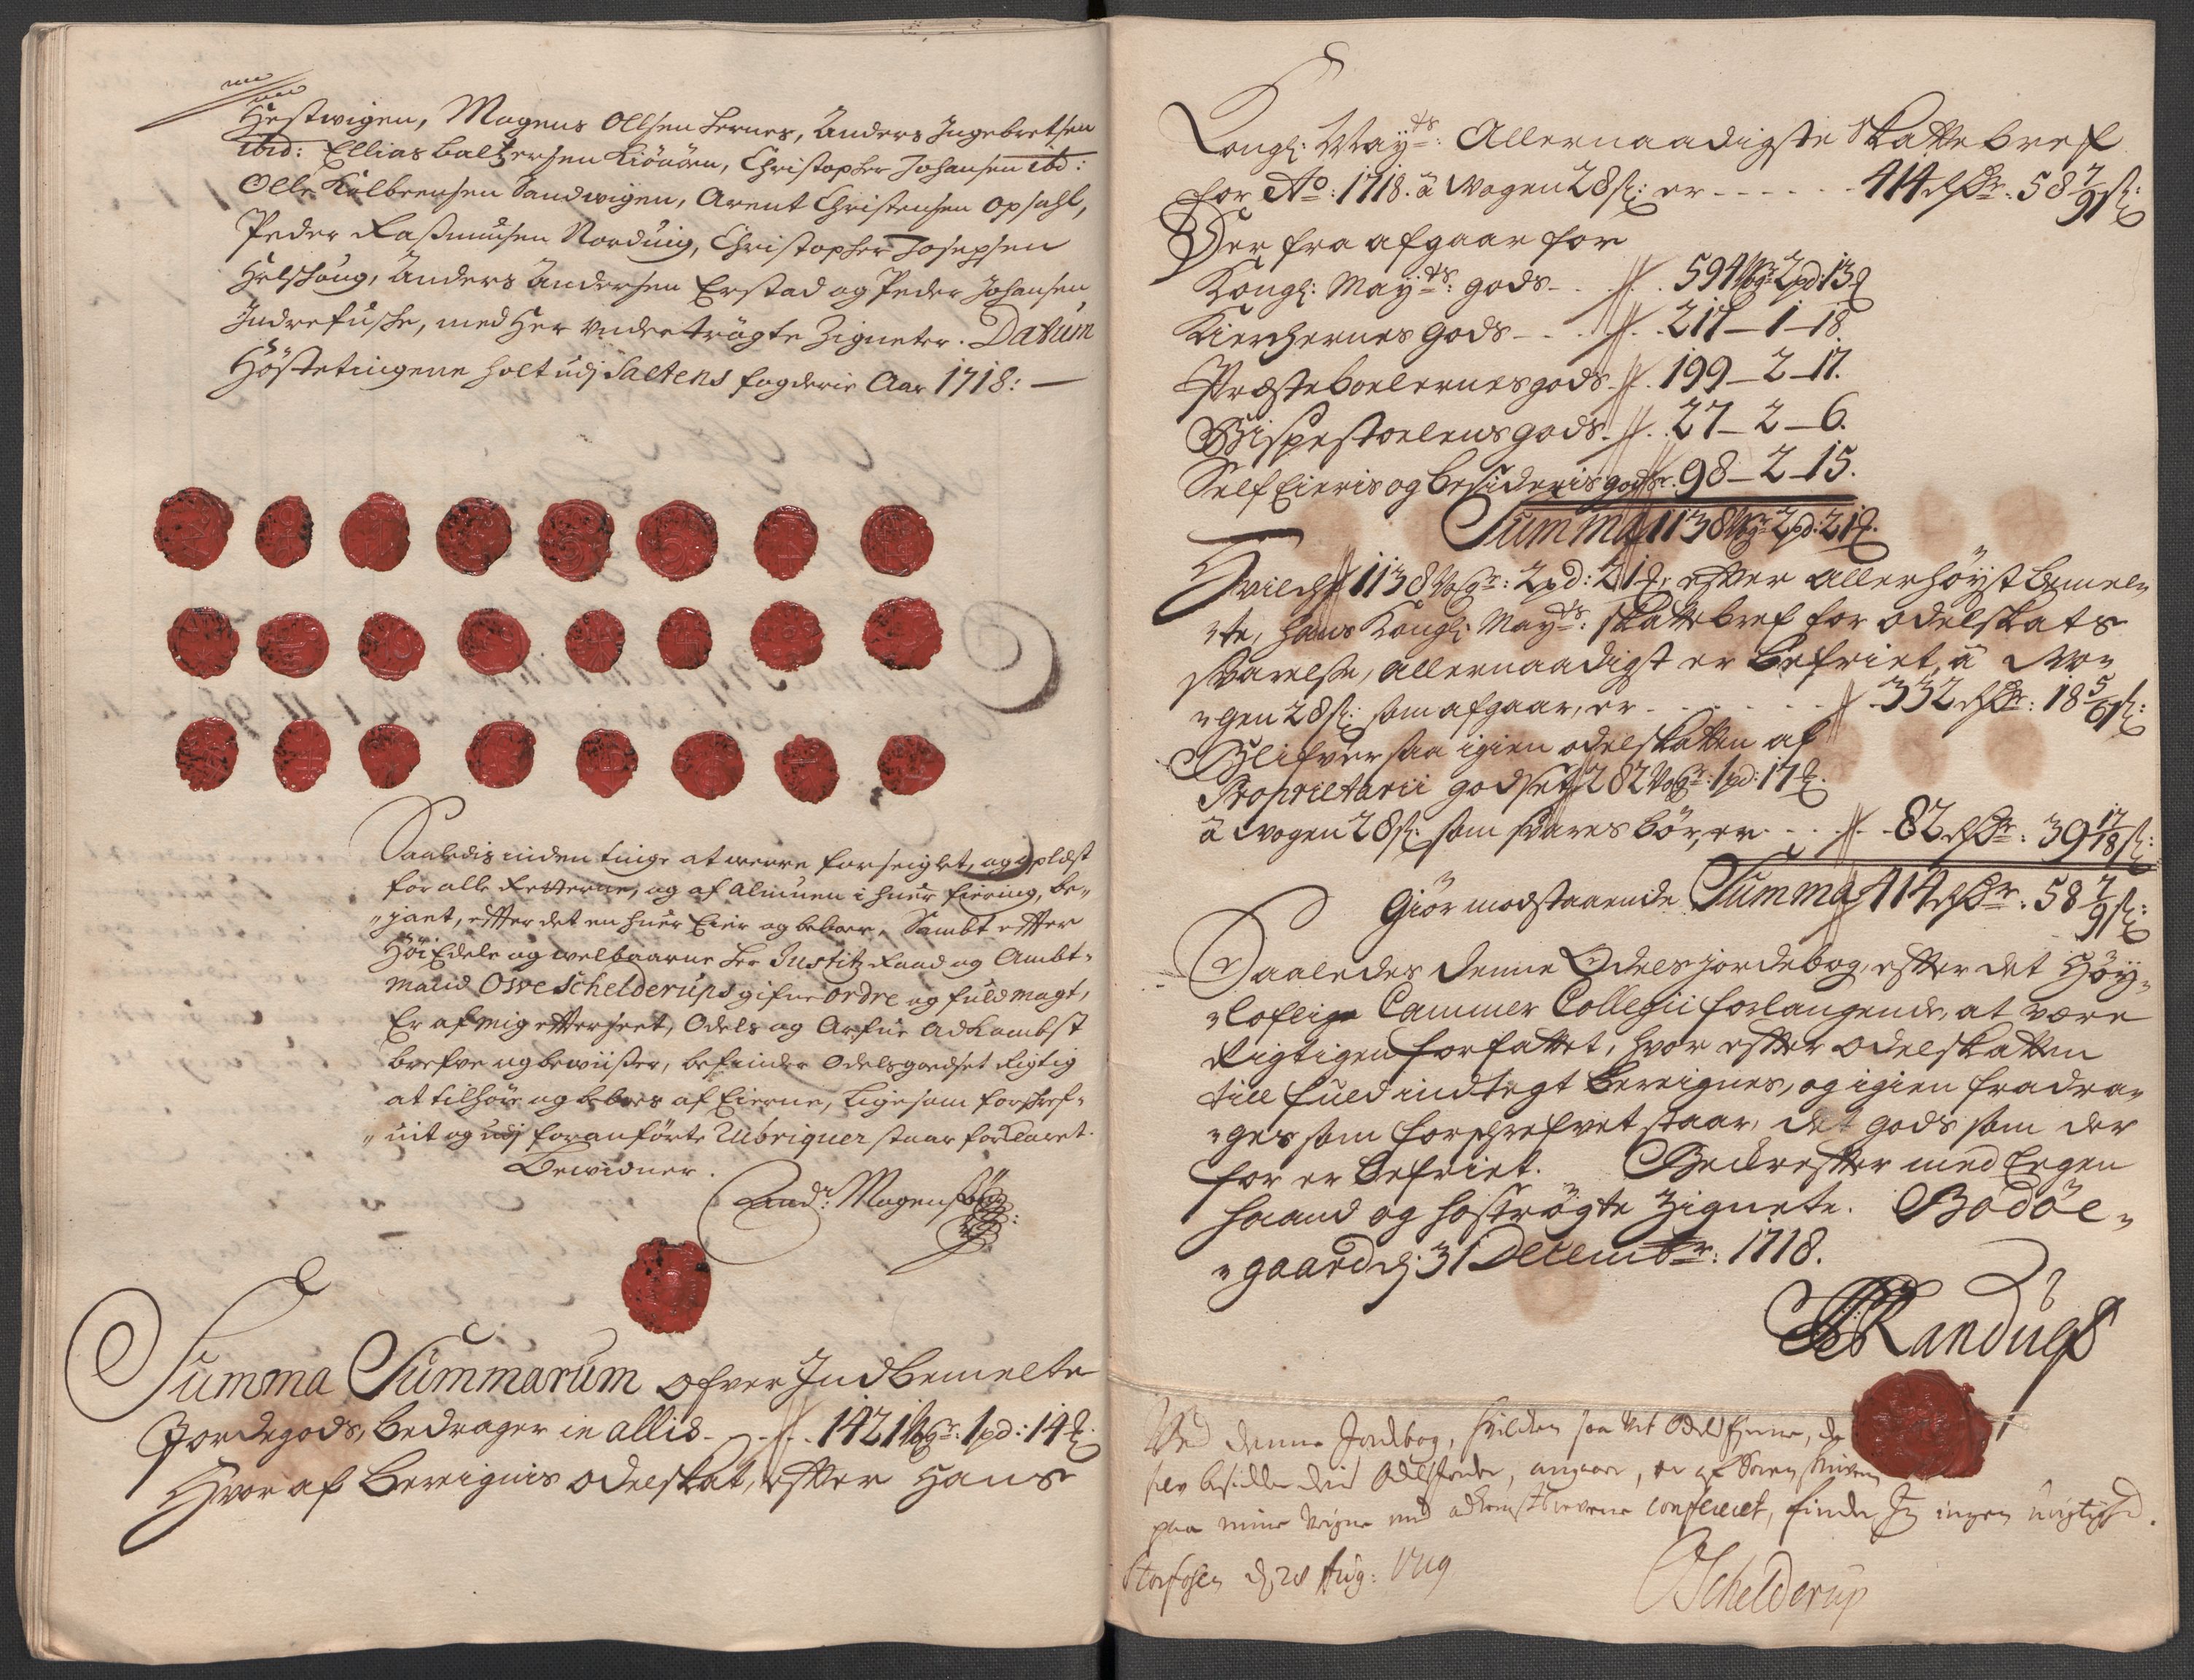 Hestwigen, Mogens Ollsen Fernes, Anders Ingebretsen
ibid: Ellias Baltzersen Kiöüöen, Christopher Johansen ibd:
Olle Kolbeensen Sandwigen, Arent Christensen Opsahl,
Peder Rasmusen Norduiig, Christopher Josepsen
Helschoug, Anders Andersen Erstad og Peder Johansen
Indrefuske, med Her undertrögte Zigneter. Datum
Höstetingene holt udj Saltens fogderie Aar 1718: —
Saaledis inden tinge at were forseiglet, og oplæst
for alle Retterne, og af Almuen i huer fiering, be„
„jaet, effter det en huer Eier og beboer, Sambt effter
Höi Edele og welbaarne Her Justitz Raad og Ambt„
mand Owe Schelderups gifne ordre og fuldmagt,
Er af mig efterseet, Odels og Arfue Adkombst
brefve og bewiiser, befinder Odelsgodset Rigtig
at tilhöre og beboes af Eierne, Ligesom forschref„
„uit og udj foranförte Rubriquer staar forklaret.
Bewidner.
And: Mogensön
Summa Summarum ofver Indbemelte
Jordegods, bedrager in allis - - - 1421 Wogr: 1 pd: 14 ℔.
Hvor af bereignis odelskat, effter Hans
Kongl: Mayts: Allernaadigste Skattebref
for Ao: 1718. â Wogen 28 s: er - - - - - 414 Rdr: 58 7/9 s:
Der fra afgaar for
Kongl: Mayts: gods - - 594 Wogr 2 pd: 13 ℔
Kierchernes gods - - - 217 – 1 – 18.
Præsteboelernes gods - 199 – 2 – 17.
Bispestoelens gods - 27 – 2 – 6.
Self Eieris og besidderis gods - 98 – 2 – 15.
Summa 1138 Wogr 2 pd: 21 ℔.
Hvilche 1138 Wogr: 2 pd: 21 ℔. effter allerhöyst bemel„
„te, Hans Kongl: Mayts: Skattebref for odelskats
svarelse, allernaadigst er befriet, â Wo„
„gen 28 s: som afgaar, er - - - - - 332 Rdr: 18 5/6 s:
Blifver saa igien odelskatten af
Proprietarii godset 282 Wogr: 1 pd: 17 ℔.
â Wogen 28 s: som svares bör, er - - - 82 Rdr: 39 17/18 s:
Giör modstaaende Summa 414 Rdr: 58 7/9 s:
Saaledes denne Odels jordebog, effter det Höy„
„loflige Cammer Collegii forlangende, at være
Rigtigen forfattet, hvor effter odelskatten
till fuld indtegt bereignes, og igien fradra„
„ges som forschrefvet staar, det gods som der
for er befriet. Bekrefter med Eegen
haand og hoströgte Zignete. Bodöe„
„gaard dj: 31 Decembr: 1718.
Randulf
Ved denne Jordbog, hvilken saa vit Odels Eierne, der
selv besidder deris Odelsjorder, angaar, er af Sorenskriveren
paa mine vegne med adkomstbrevene confereret, finder Jeg ingen urigtighed.
Storfosen dj 28 Aug: 1719
OSchelderup